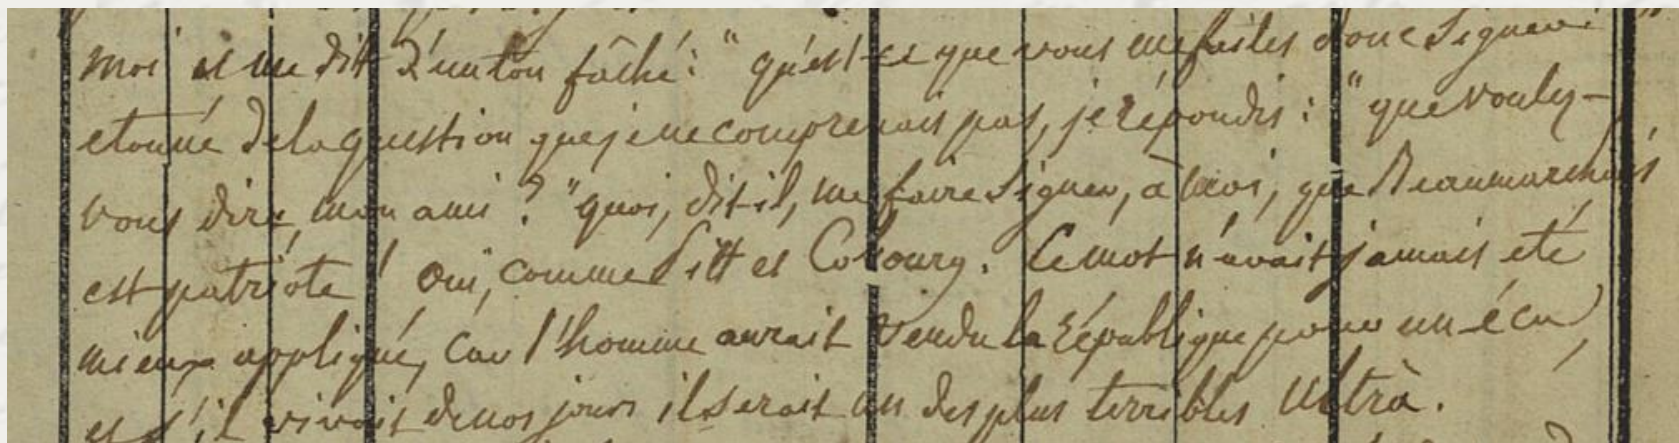 moi et me dit d'un ton fâché: "qu'est-ce que vous me faites donc signer?
etonné de la question que je ne comprenais pas, je répondis: "que voulez-
vous dire, mon ami? "quoi, dit-il, me faire signer, à moi, que Beaumarchais
est patriote! oui, comme Pitt et Cobourg. Ce mot n'avait jamais eté
mieux appliqué, car l'homme aurait vendu la république pour un écu,
et s'il vivait de nos jours il serait un des plus terribles Ultrà.